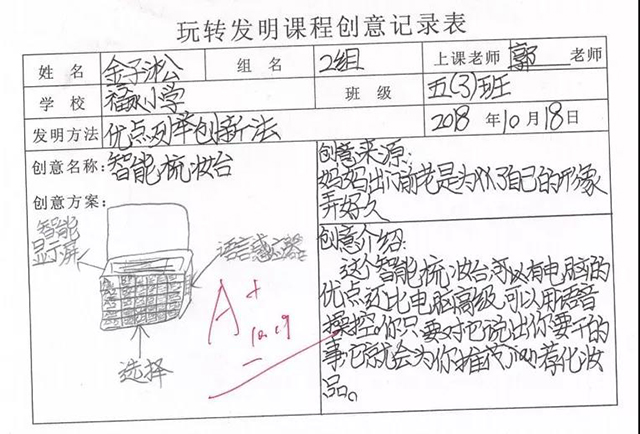 玩转发明课程创意记录表
姓名 金子淞 组名 2组 上课老师 郭 老师
学校 福水小学 班级 五(3)班
发明方法 优点列举创新法 2018 年10月18日
创意名称:智能梳妆台
创意方案:
智能
显示屏
语言感应器
选择
A+
10.19
创意来源:
妈妈出门前老是为了自己的形象
弄好久
创意介绍:
这个智能梳妆台可以有电脑的
优点还比电脑高级可以用语音
操控你只要对它说出你要干的
事它就会为你推荐jiàn荐化妆
品。